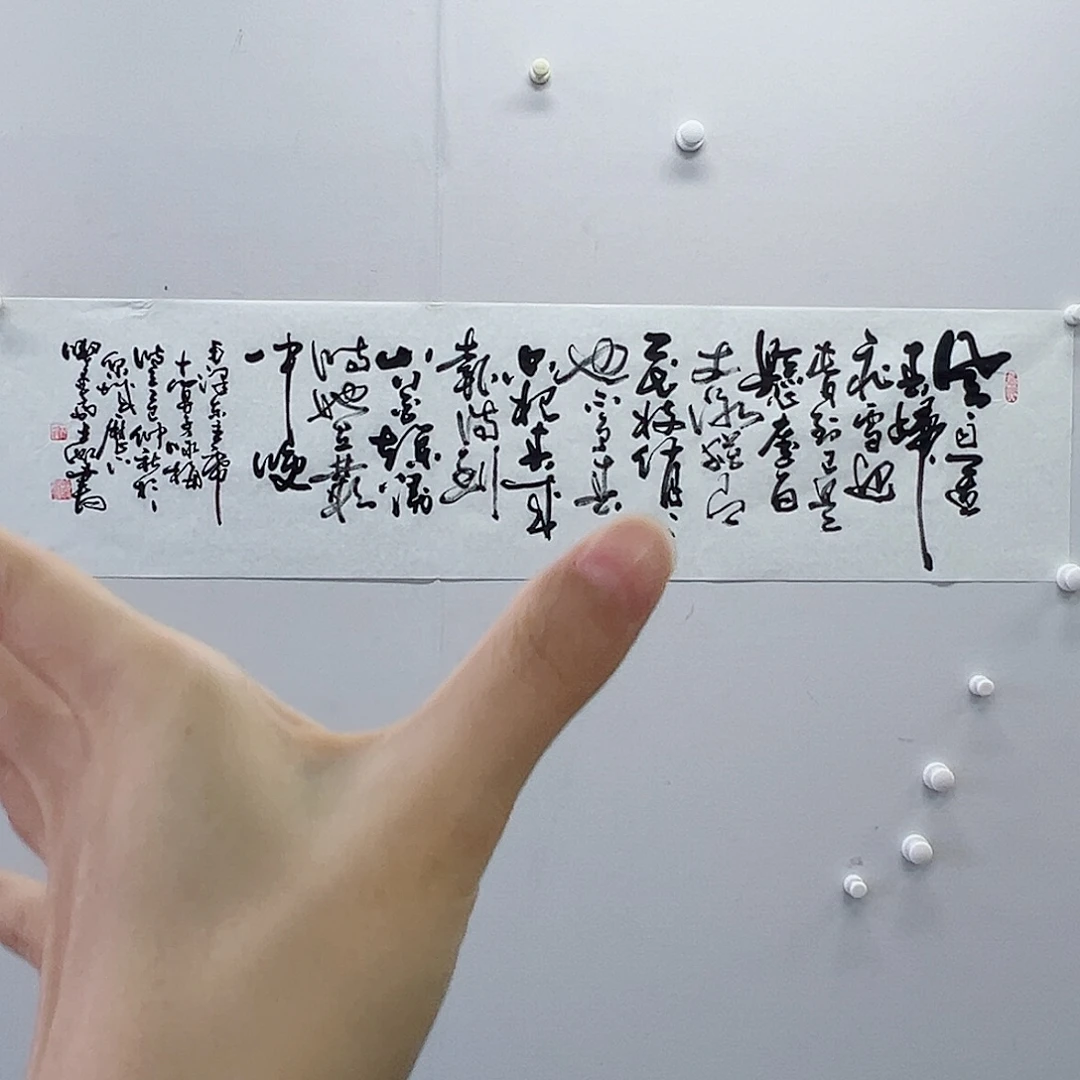 风雨送
春歸
飛雪迎
春到已是
懸崖百
丈冰猶有
花枝俏〻
也不爭春
只把春來
報待到
山花爛漫
時她在叢
中笑
毛澤東主席
卜算子咏梅
仲秋於